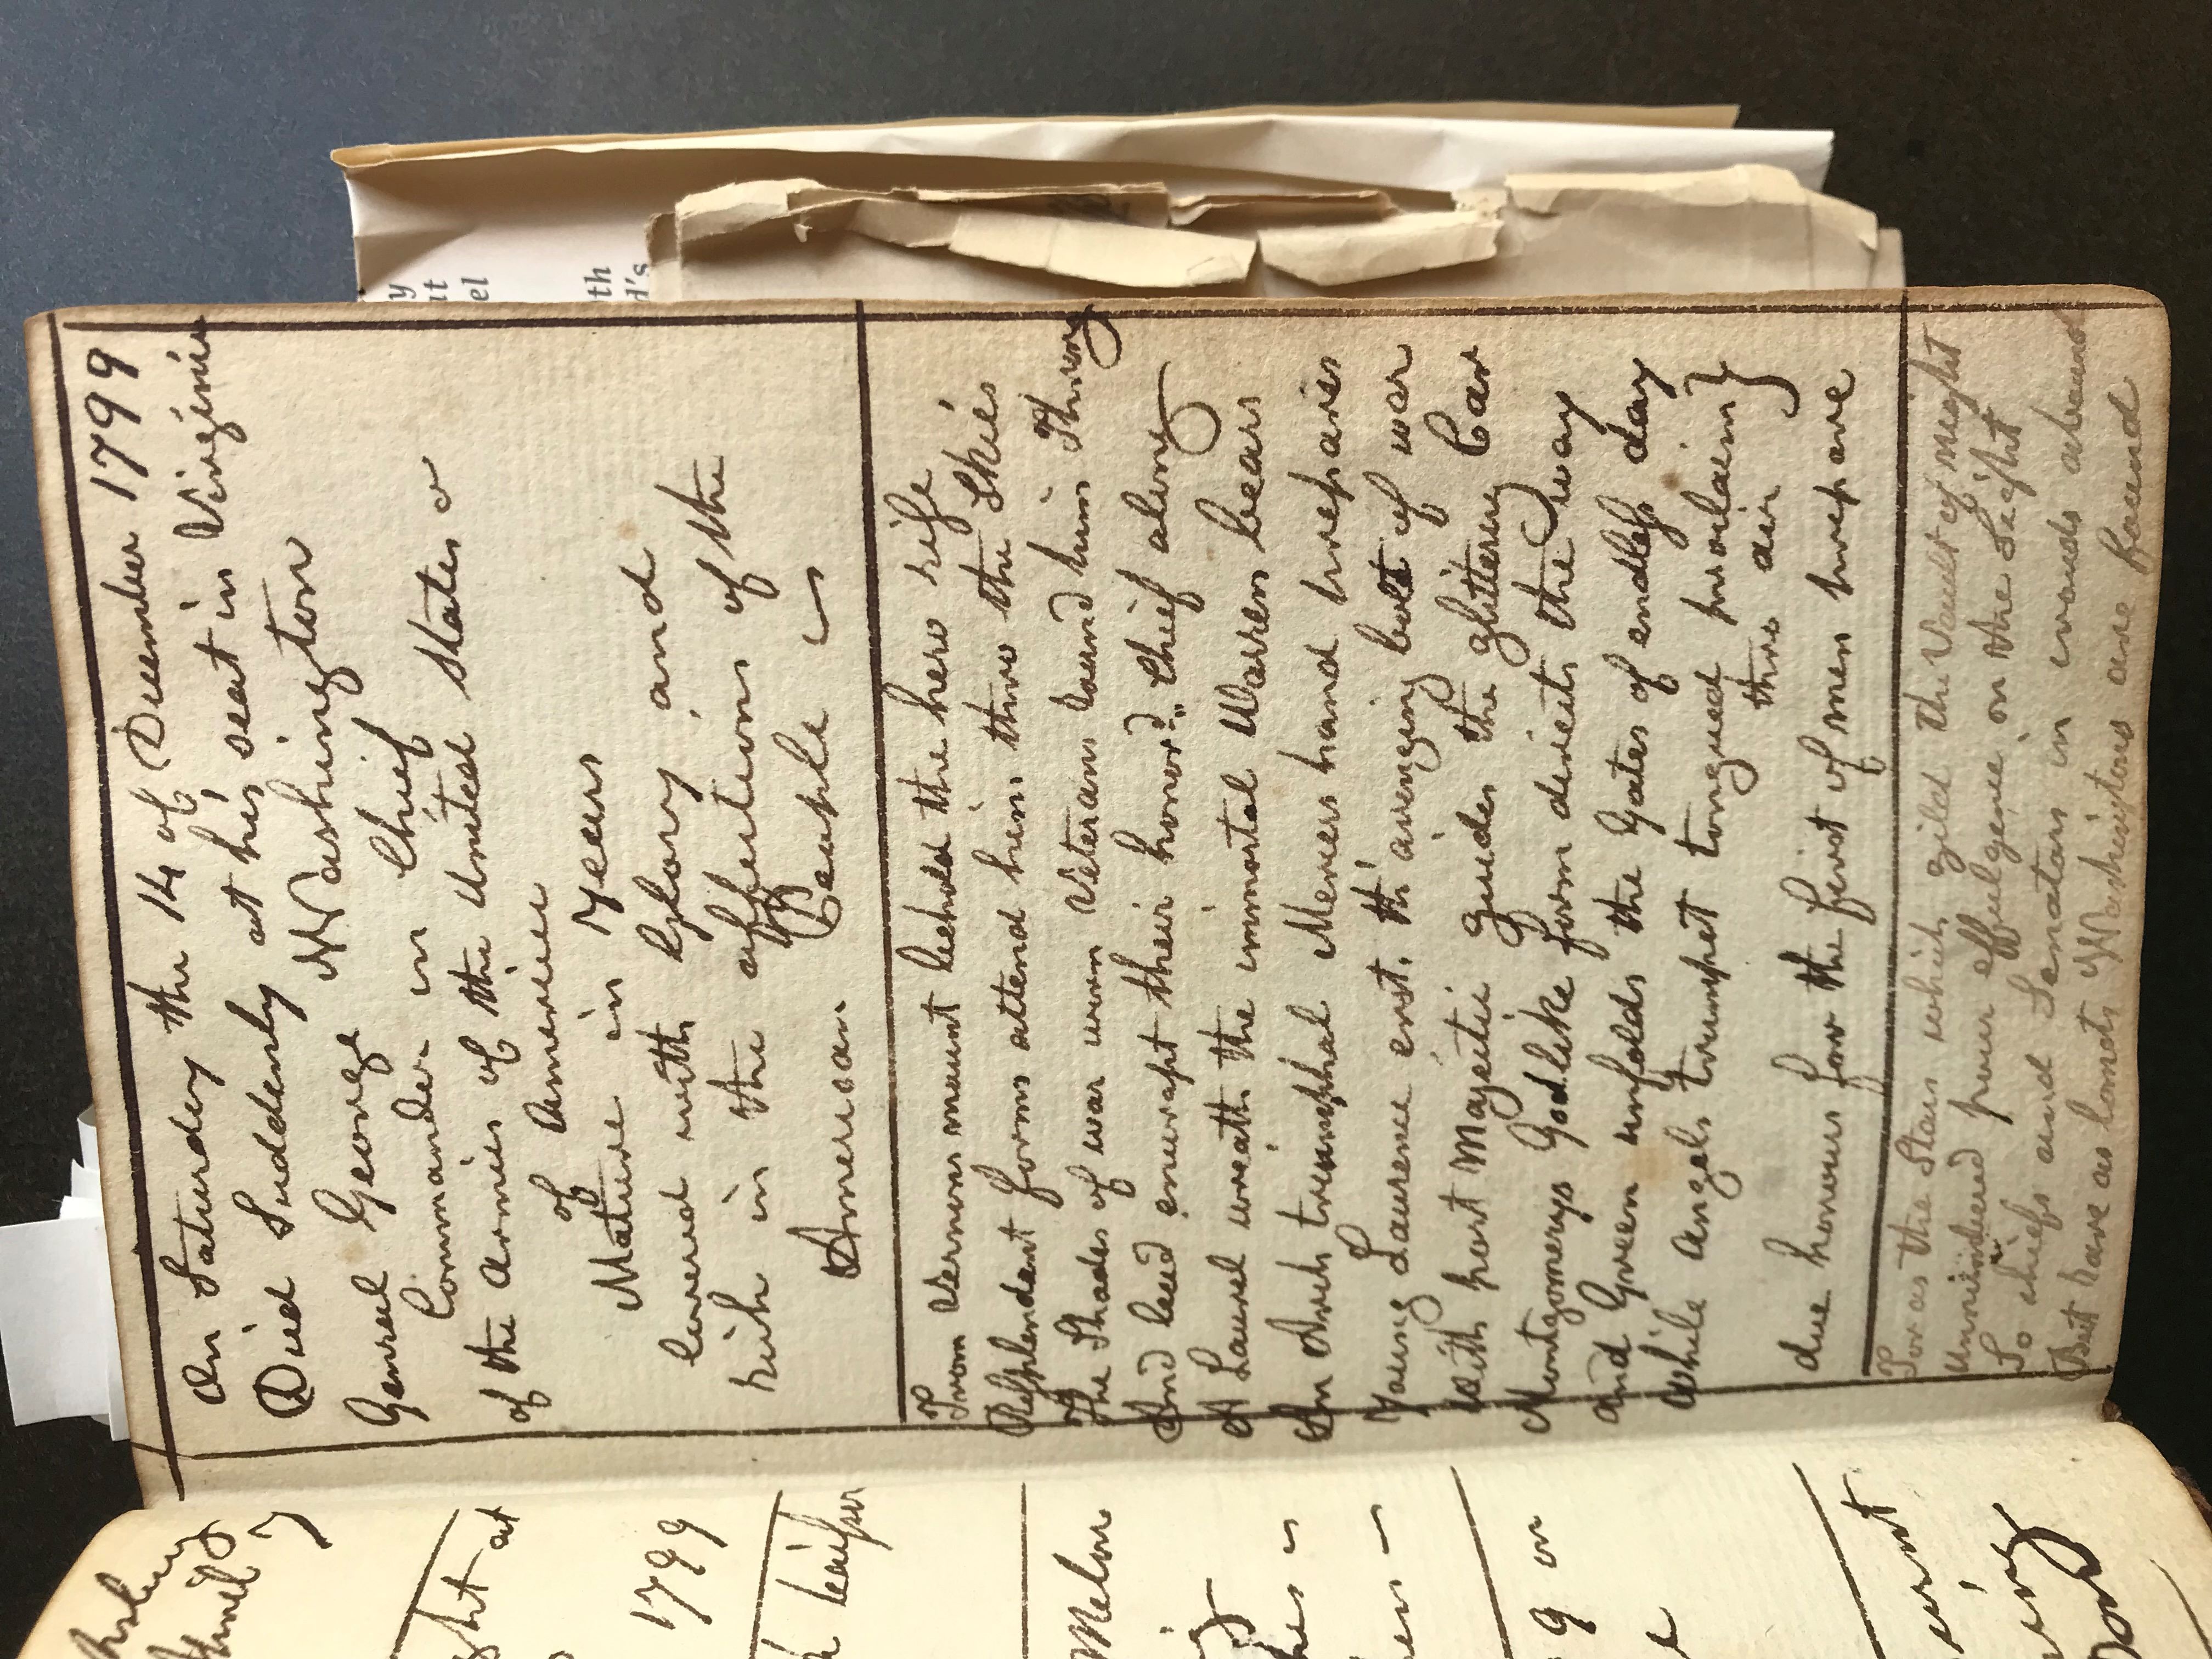 On Saturday the 14 of December 1799
Died Suddenly at his seat in Virginia
General George Washington
Commander in Chief
of the armies of the United States
of America
Mature in Years
covered with Glory and
rich in the affections of the
American People
From Vernons mount behold the hero rise
Resplendent forms attend him thro the skies
The Shades of war worn Veterans round him Throng
And lead enwrapt their honor'd chief along
A Laurel wreath the immortal Warren bears
An Arch triumphal Mercers hand prepairs
Young Laurence erst th' avenging bolt of war
With port Majestic guides the glittering Car
Montgomerys Godlike form directs the way
and Green unfolds the Gates of endless day
While Angels trumpet tongued proclaim }
thro air
due honours for the first of men prepare
For as the Stars which gild the Vault of night
Unnumbered pour effulgence on the Sight
So chiefs and Senators in crouds abound
But rare as comets Washingtons are found
ght at
1799
Melon
9 on
y
ut
el
th
d's